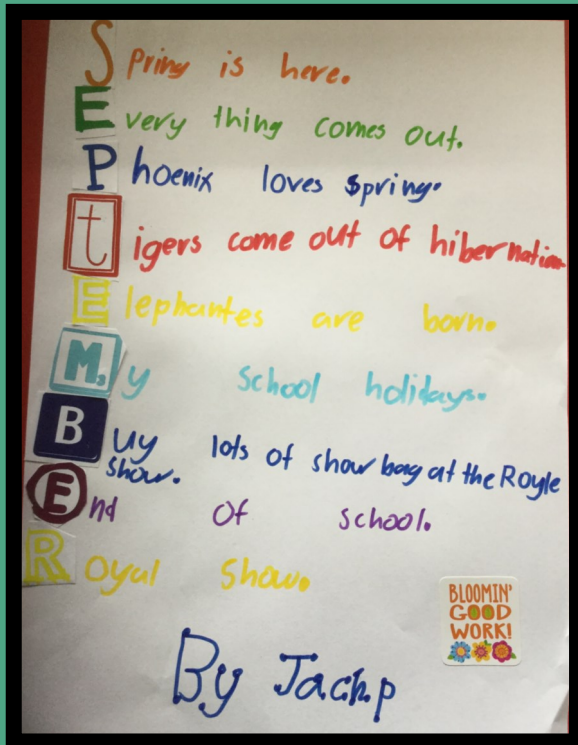 Spring is here.
Every thing comes out.
Phoenix loves spring.
tigers come out of hibernation
Elephantes are born.
My school holidays.
Buy lots of show bag at the Royle
show.
End of school.
Royal show.
BLOOMIN'
GOOD
WORK!
By Jachp